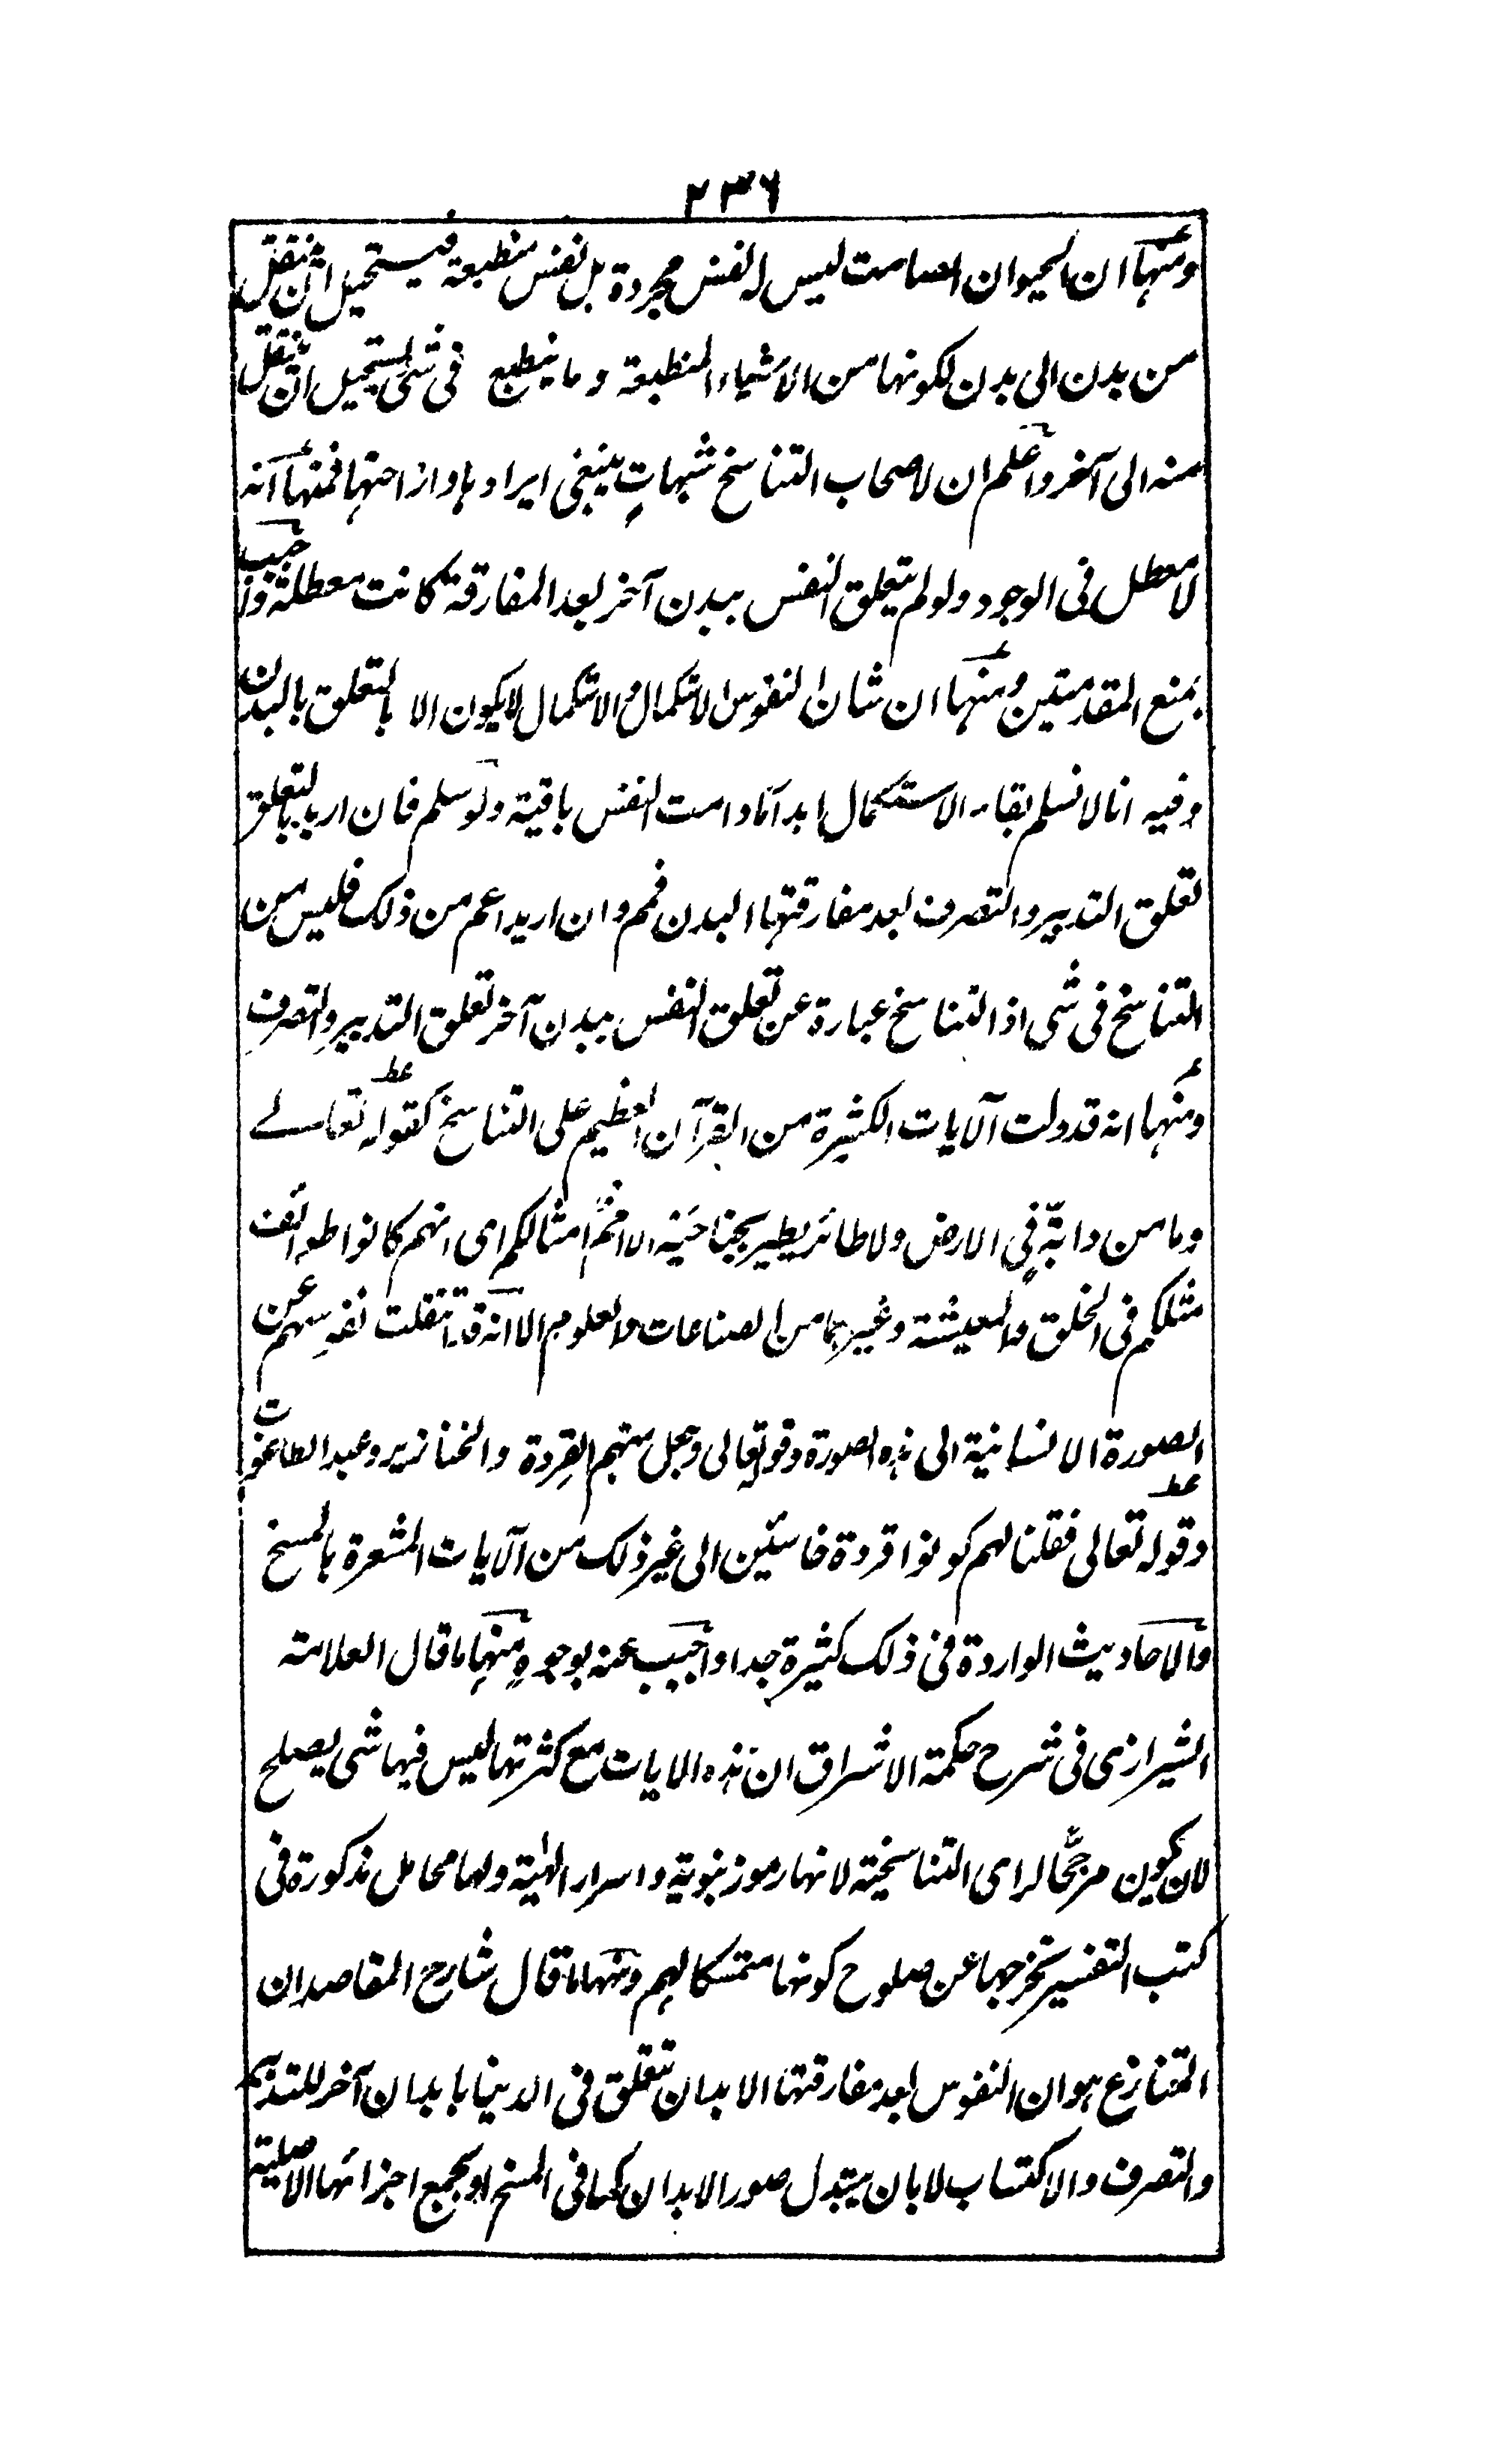 ٢٣٦
ومنها ان الحيوان الصامت ليس له نفس مجردة بل نفس منطبعة فيستحيل ان تنقل
من بدن الى بدن لكونها من الاشياء المنطبعة وما ينطبع فى شئ يستحيل ان تنقل
منه الى آخر واعلم ان لاصحاب التناسخ شبهاتٍ ينبغى ايرادها وازاحتها فمنها انه
لا معطل فى الوجود ولو لم يتعلق النفس ببدن آخر بعد المفارقة كانت معطلة واجيب
بمنع المقدمتين ومنها ان شان النفوس الاستكمال والاستكمال لا يكون الا بالتعلق بالبدن
وفيه انا لا نسلم بقاء الاستكمال ابدا ما دامت النفس باقية ولو سلم فان اريد بالتعلق
تعلق التدبير والتصرف بعد مفارقتها البدن فمم وان اريد اعم من ذلك فليس من
التناسخ فى شى اذ التناسخ عبارة عن تعلق النفس ببدن آخر تعلق التدبير والتصرف
ومنها انه قد دلت الآيات الكثيرة من القرآن العظيم على التناسخ كقوله تعالے
وما من دابّة فى الارض ولا طائر يطير بجناحيه الا اممٌ امثالكم اى انهم كانوا طوائف
مثلكم فى الخلق والمعيشة وغيرهما من الصناعات والعلوم الا انه قد انتقلت نفوسهم عن
الصورة الانسانية الى هذه الصورة وقوله تعالى وجعل منهم القردة والخنازير وعبد الطاغوت
وقوله تعالى فقلنا لهم كونوا قردة خاسئين الى غير ذلك من الآيات المشعرة بالمسخ
والاحاديث الواردة فى ذلك كثيرة جدا واجيب عنه بوجوهٍ منها ما قال العلامة
الشيرازى فى شرح حكمة الاشراق ان هذه الايات مع كثرتها ليس فيها شى يصلح
لان يكون مرجّحا لراى التناسخية لانها رموز نبوية واسرار الٰهية ولها محامل مذكورة فى
كتب التفسير تخرجها عن صلوح كونها متمسكا لهم ومنها ما قال شارح المقاصد ان
المتنازع هو ان النفوس بعد مفارقتها الابدان تتعلق فى الدنيا بابدان آخر للتدبير
والتصرف والاكتساب لا بان يتبدل صور الابدان كما فى المسخ او يجمع اجزائها الاصلية